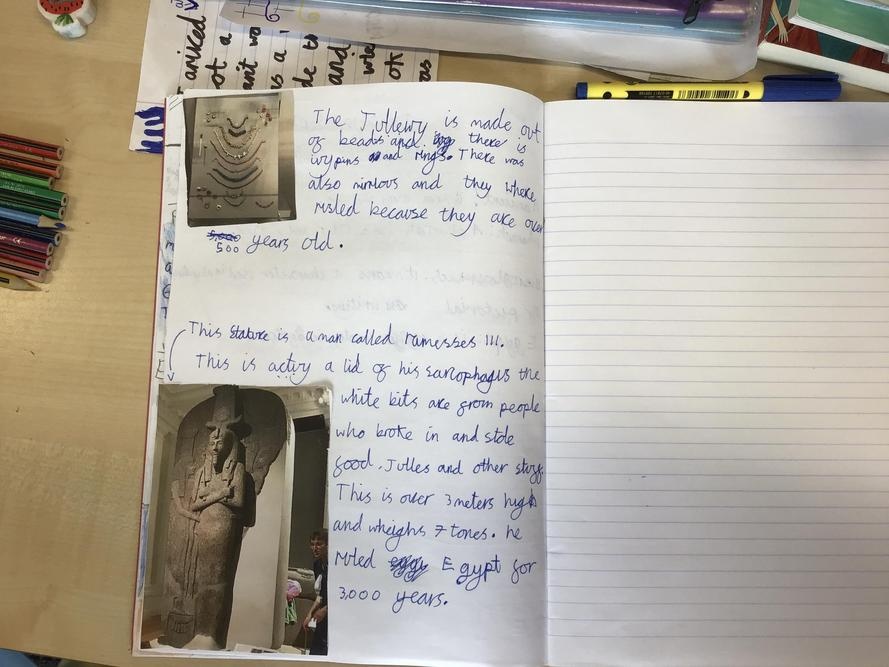 ariked
ot a
ant wa
s a
de to
and
whe
ok
as
The Jullewy is made out
of beads and there is
ivypins and rings. There was
also nimlous and they where
ruled because they are over
5,000
500 years old.
This stature is a man called ramesses III.
This is activy a lid of his sarcophagus the
white bits are from people
who broke in and stole
food. Julles and other stuff
This is over 3 meters high
and wheighs 7 tones. he
ruled Egypt for
3,000 years.